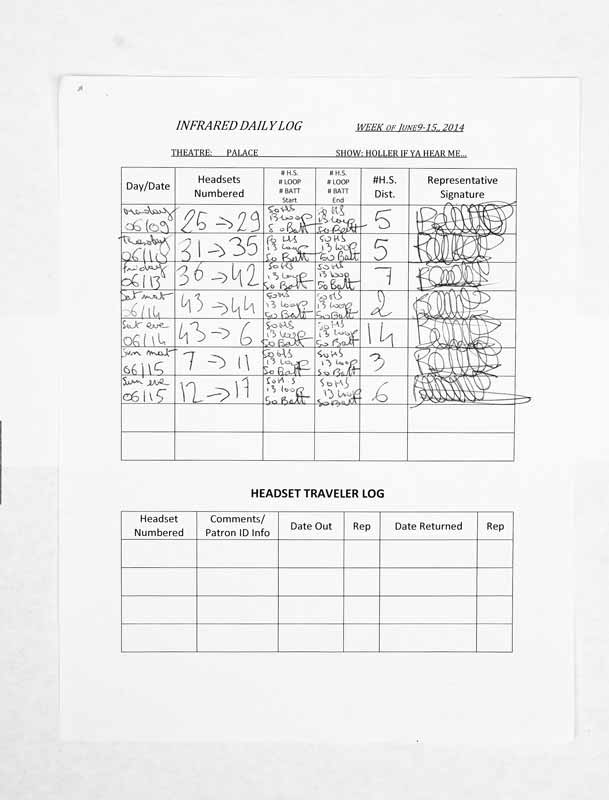 INFRARED DAILY LOG WEEK OF JUNE9-15,, 2014
THEATRE: PALACE SHOW: HOLLER IF YA HEAR ME...
Day/Date Headsets Numbered # H.S. # LOOP # BATT Start # H.S. # LOOP # BATT End #H.S. Dist. Representative Signature
Monday 06/09 25 → 29 50HS 13 Loop 50 Batt 50 HS 13 Loop 50 Batt 5
Tuesday 06/10 31 → 35 50 HS 13 Loop 50 Batt 50HS 13 Loop 50 Batt 5
Friday 06/13 36 → 42 50HS 13 Loop 50 Batt 50HS 13 Loop 50 Batt 7
Sat mat 06/14 43 → 44 50HS 13 Loop 50 Batt 50 HS 13 Loop 50 Batt 2
Sat eve 06/14 43 → 6 50HS 13 Loop 50 Batt 50HS 13 Loop 50 Batt 14
Sun mat 06/15 7 → 11 50HS 13 Loop 50 Batt 50HS 13 Loop 50 Batt 3
Sun eve 06/15 12 → 17 50H.S 13 Loop 50 Batt 50HS 13 Loop 50 Batt 6
HEADSET TRAVELER LOG
Headset Numbered Comments/ Patron ID Info Date Out Rep Date Returned Rep